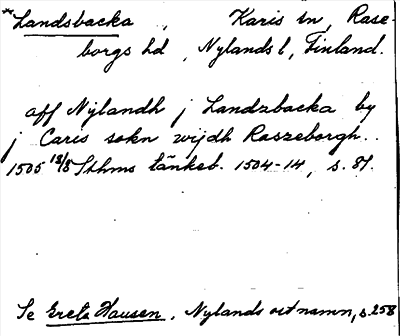 *Landsbacka, Karis sn, Rase-
borgs hd, Nylands l, Finland.
aff Nylandh j Landzbacka by
j Caris sokn wijdh Raszeborgh.
1505 18/8 Sthms tänkeb. 1504-14, s. 87.
Se Greta Hausen, Nylands ortnamn, s. 258